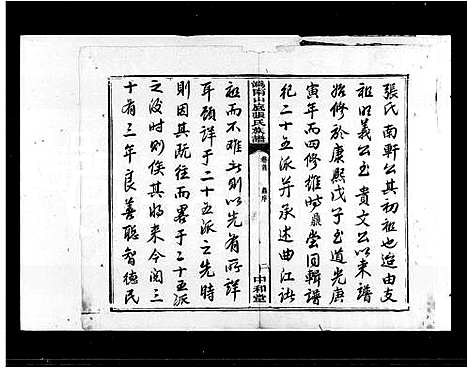 張氏南軒公其初祖也逓由支
祖明義公至貴文公以來譜
始修於康熙戊子至道光庚
寅年而四修雄時鼎嘗囬輯譜
祀二十五派並承述曲江諸
溈南山底張氏族譜
卷首
序
二
中和堂
祖而不難也則以先有所詳
耳顧詳于二十五派之先時
則因其既往而畧于二十五派
之後時則俟其將來今閱三
十有三年良善聪智德民